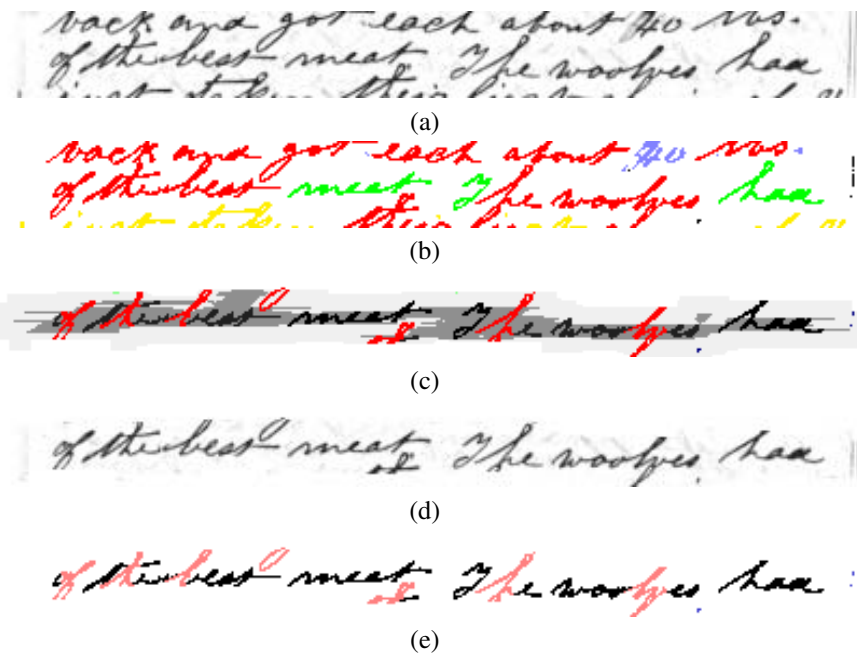 back and got each about 40 lbs.
of the best meat The woolves had
just taken their
(a)
back and got each about 40 lbs.
of the best meat The woolves had
just taken their
(b)
of the best meat The woolves had
(c)
of the best meat The woolves had
(d)
of the best meat The woolves had
(e)